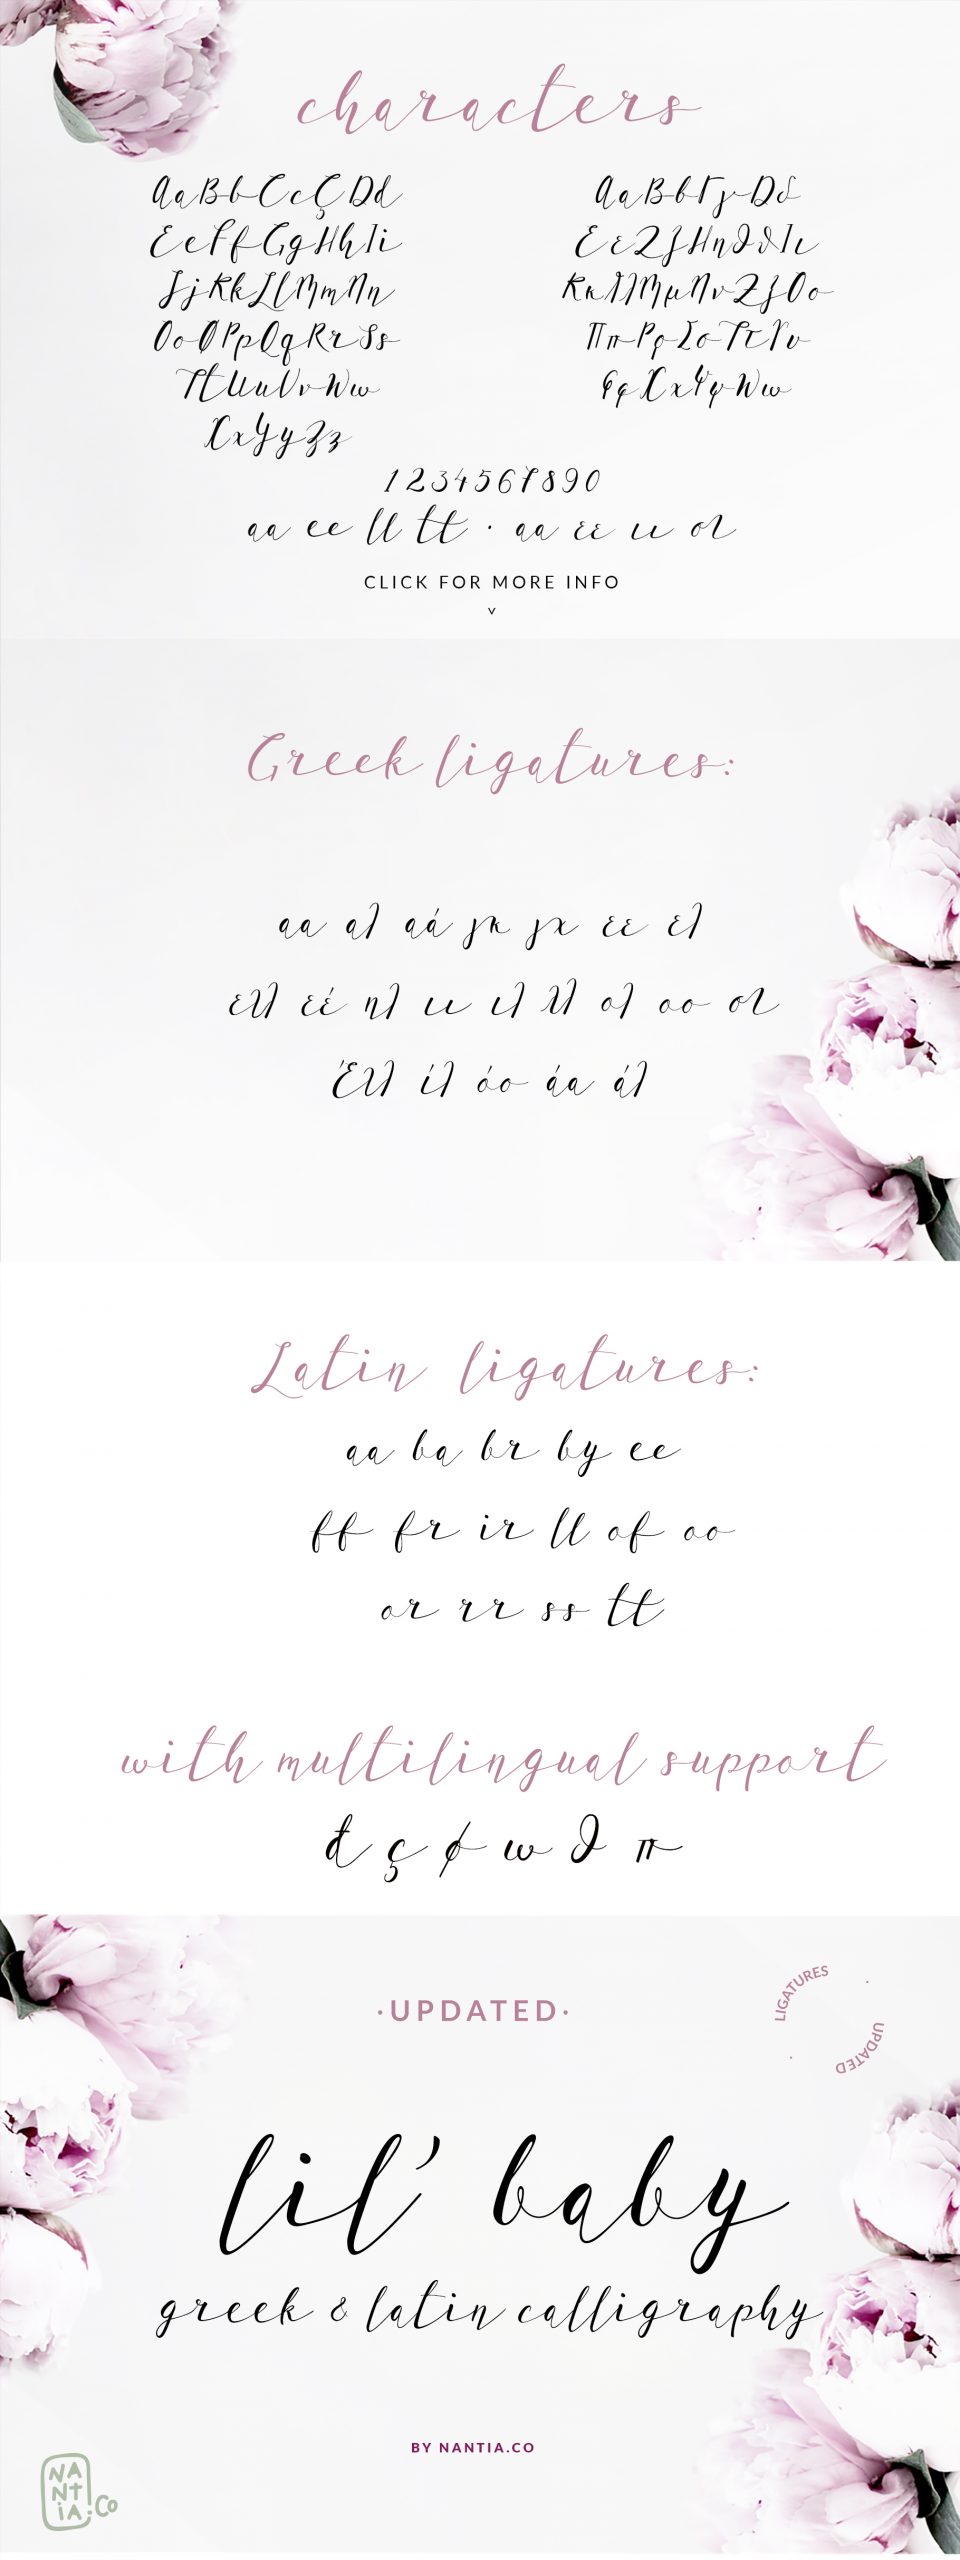 characters
AaBbCcÇDd
EeFfGgHhIi
JjKkLlMmNn
OoØPpQqRrSs
TtUuVvWw
XxYyZz
ΑαΒβΓγΔδ
ΕεΖζΗηΘθΙι
ΚκΛλΜμΝνΞξΟο
ΠπΡρΣσΤτΥυ
ΦφΧχΨψΩω
1234567890
aa ee ll tt · αα εε ιι ολ
CLICK FOR MORE INFO
v
Greek ligatures:
αα αλ αά γκ γχ εε ελ
ελλ εέ ηλ ιι ιλ λλ ολ οο ολ
Έλλ ίλ όο άα άλ
Latin ligatures:
aa ba br by ee
ff fr ir ll of oo
or rr ss tt
with multilingual support
đ ç ø ω θ π
·UPDATED·
LIGATURES · UPDATED ·
lil' baby
greek & latin calligraphy
BY NANTIA.CO
NANTIA.CO